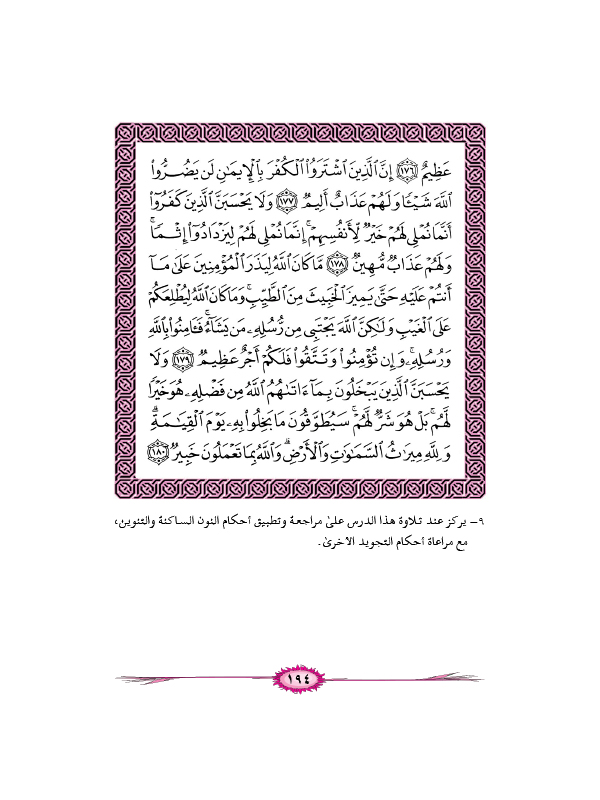 عَظِيمٌ ﴿١٧٦﴾ إِنَّ الَّذِينَ اشْتَرَوُا الْكُفْرَ بِالْإِيمَٰنِ لَن يَضُرُّوا
اللَّهَ شَيْـًٔا وَلَهُمْ عَذَابٌ أَلِيمٌ ﴿١٧٧﴾ وَلَا يَحْسَبَنَّ الَّذِينَ كَفَرُوٓا
أَنَّمَا نُمْلِى لَهُمْ خَيْرٌ لِّأَنفُسِهِمْ ۚ إِنَّمَا نُمْلِى لَهُمْ لِيَزْدَادُوٓا إِثْمًا ۚ
وَلَهُمْ عَذَابٌ مُّهِينٌ ﴿١٧٨﴾ مَّا كَانَ اللَّهُ لِيَذَرَ الْمُؤْمِنِينَ عَلَىٰ مَآ
أَنتُمْ عَلَيْهِ حَتَّىٰ يَمِيزَ الْخَبِيثَ مِنَ الطَّيِّبِ ۗ وَمَا كَانَ اللَّهُ لِيُطْلِعَكُمْ
عَلَى الْغَيْبِ وَلَٰكِنَّ اللَّهَ يَجْتَبِى مِن رُّسُلِهِۦ مَن يَشَآءُ ۖ فَـَٔامِنُوا بِاللَّهِ
وَرُسُلِهِۦ ۚ وَإِن تُؤْمِنُوا وَتَتَّقُوا فَلَكُمْ أَجْرٌ عَظِيمٌ ﴿١٧٩﴾ وَلَا
يَحْسَبَنَّ الَّذِينَ يَبْخَلُونَ بِمَآ ءَاتَىٰهُمُ اللَّهُ مِن فَضْلِهِۦ هُوَ خَيْرًا
لَّهُم ۖ بَلْ هُوَ شَرٌّ لَّهُمْ ۖ سَيُطَوَّقُونَ مَا بَخِلُوا بِهِۦ يَوْمَ الْقِيَٰمَةِ ۗ
وَلِلَّهِ مِيرَٰثُ السَّمَٰوَٰتِ وَالْأَرْضِ ۗ وَاللَّهُ بِمَا تَعْمَلُونَ خَبِيرٌ ﴿١٨٠﴾
٩- يركز عند تلاوة هذا الدرس على مراجعة وتطبيق أحكام النون الساكنة والتنوين،
مع مراعاة أحكام التجويد الأخرى.
١٩٤